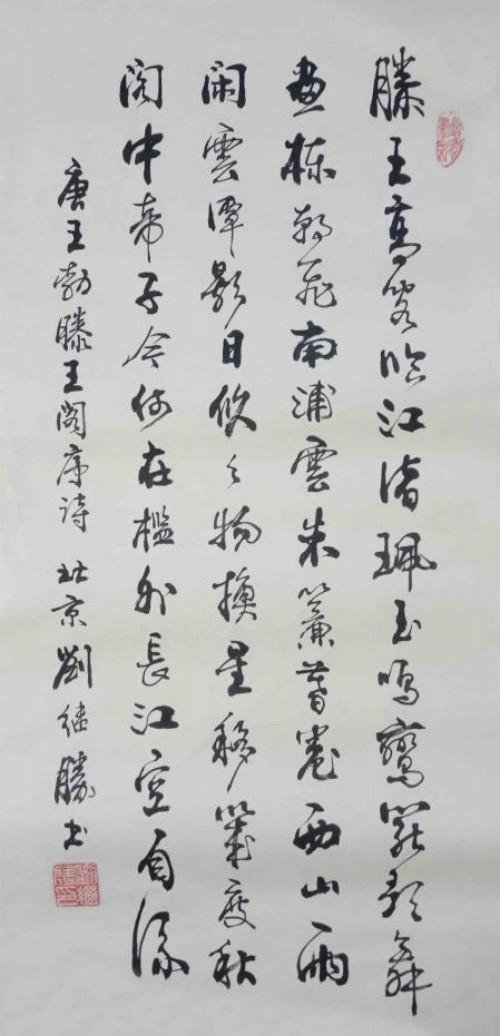 滕王高阁临江渚珮玉鸣鸾罷歌舞
畫栋朝飛南浦雲朱簾暮捲西山雨
闲雲潭影日悠々物换星移幾度秋
阁中帝子今何在槛外長江空自流
唐王勃滕王阁序诗 北京劉继勝书